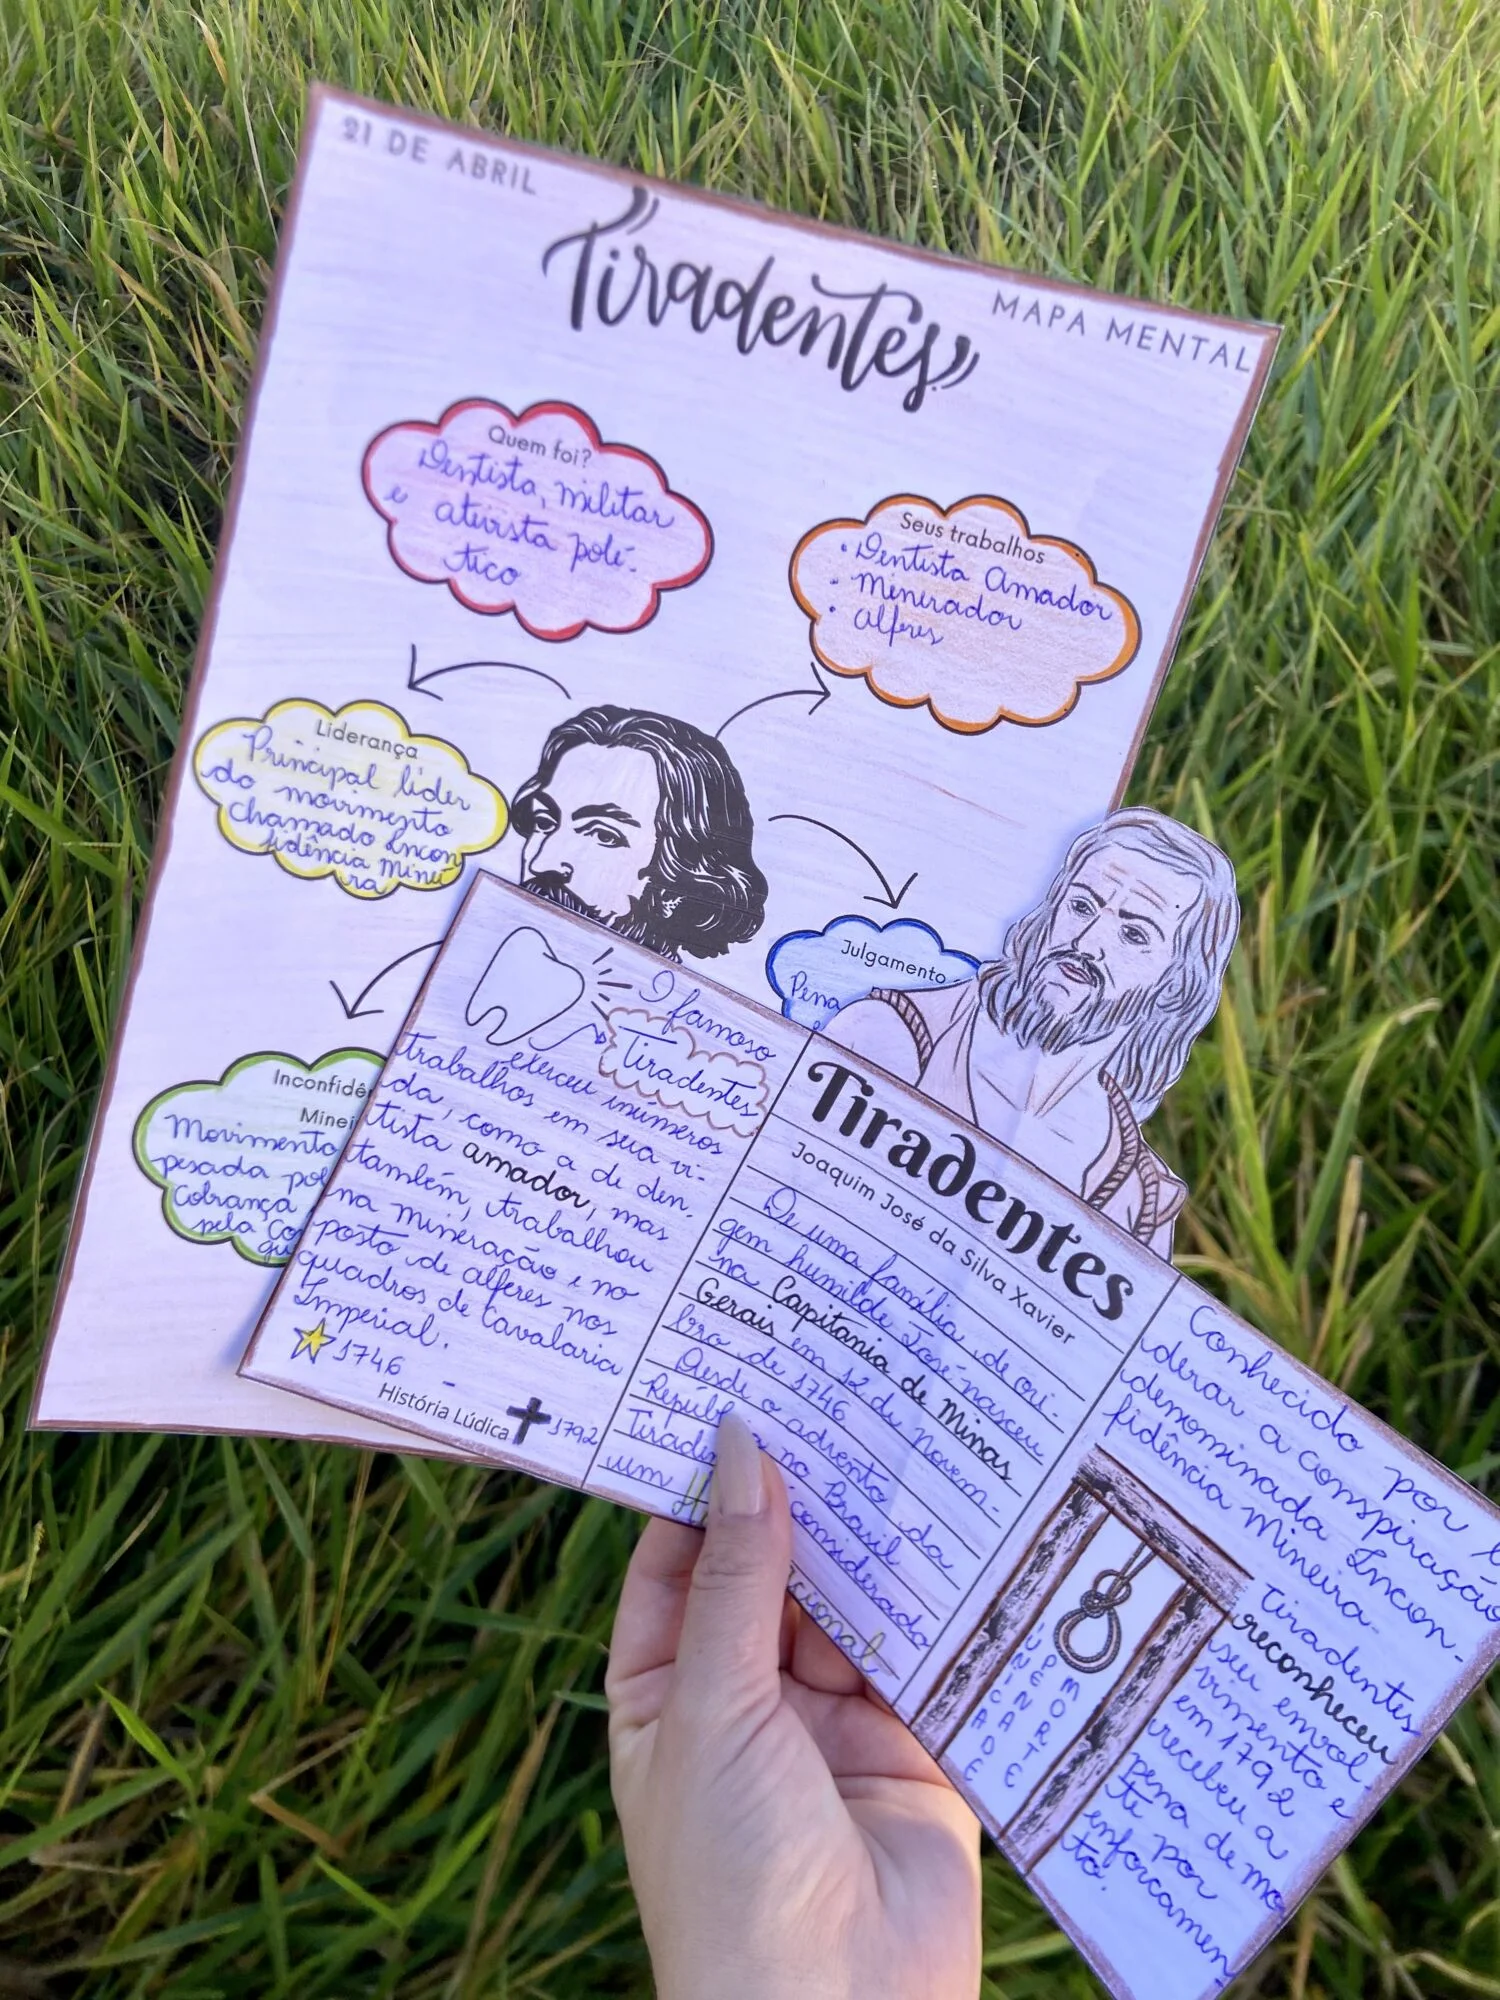 21 DE ABRIL
Tiradentes
MAPA MENTAL
Quem foi?
Dentista, militar
e ativista polí-
tico
Seus trabalhos
• Dentista Amador
• Minerador
• Alferes
Liderança
Principal líder
do movimento
Chamado Incon
fidência Minei
ra
Julgamento
Pena
Movimento
pesada
Cobrança
pela
O famoso
Tiradentes
exerceu inúmeros
trabalhos em sua vi-
da, como a de den-
tista amador, mas
também, trabalhou
na mineração e no
posto de alferes nos
quadros de Cavalaria
Imperial.
1746 -
História Lúdica
1792
Tiradentes
Joaquim José da Silva Xavier
De uma família de ori-
gem humilde José nasceu
na Capitania de Minas
Gerais em 12 de novem-
bro de 1746
Desde o advento da
no Brasil
considerado
um
Conhecido por
derar a conspiração
denominada Incon-
fidência Mineira.
Tiradentes
reconheceu
seu envol-
vimento e
em 1792
recebeu a
pena de mo
te por
enforcamen
to.
MORTE